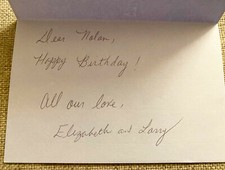 Dear Nolan,
Happy Birthday!
All our love,
Elizabeth and Larry